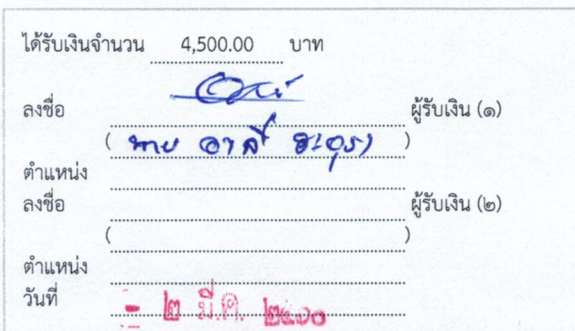 ได้รับเงินจำนวน 4,500.00 บาท
ลงชื่อ ผู้รับเงิน (๑)
( นาย อาลี )
ตำแหน่ง
ลงชื่อ ผู้รับเงิน (๒)
( )
ตำแหน่ง
วันที่ - ๒ มี.ค.